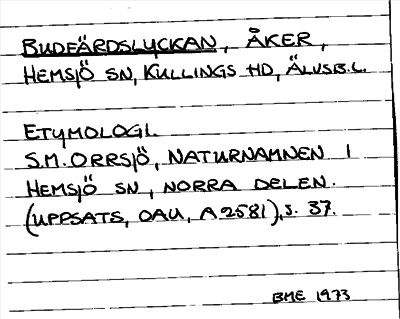 BUDEÄRDSLYCKAN, ÅKER,
HEMSJÖ SN, KULLINGS HD, ÄLVSB.L.
ETYMOLOGI.
S.M. ORRSJÖ, NATURNAMNEN I
HEMSJÖ SN, NORRA DELEN.
(UPPSATS, OAU, A 2581), S. 37.
BME 1973